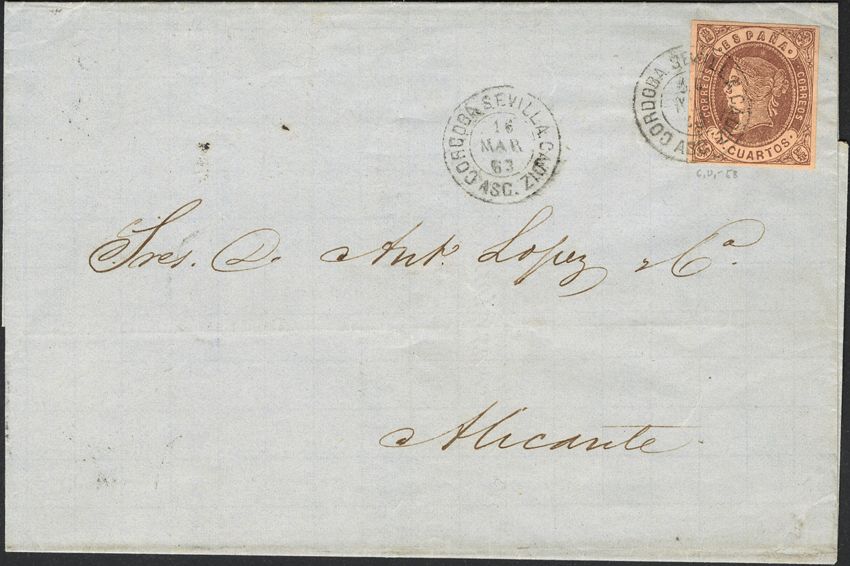 CORDOBA. SEVILLA. CADIZ
ASC.
16
MAR
63
CORDOBA SEVILLA CADIZ
ASC.
ESPAÑA
CORREOS
CORREOS
CUARTOS
Sres. D. Ant. Lopez y Ca.
Alicante